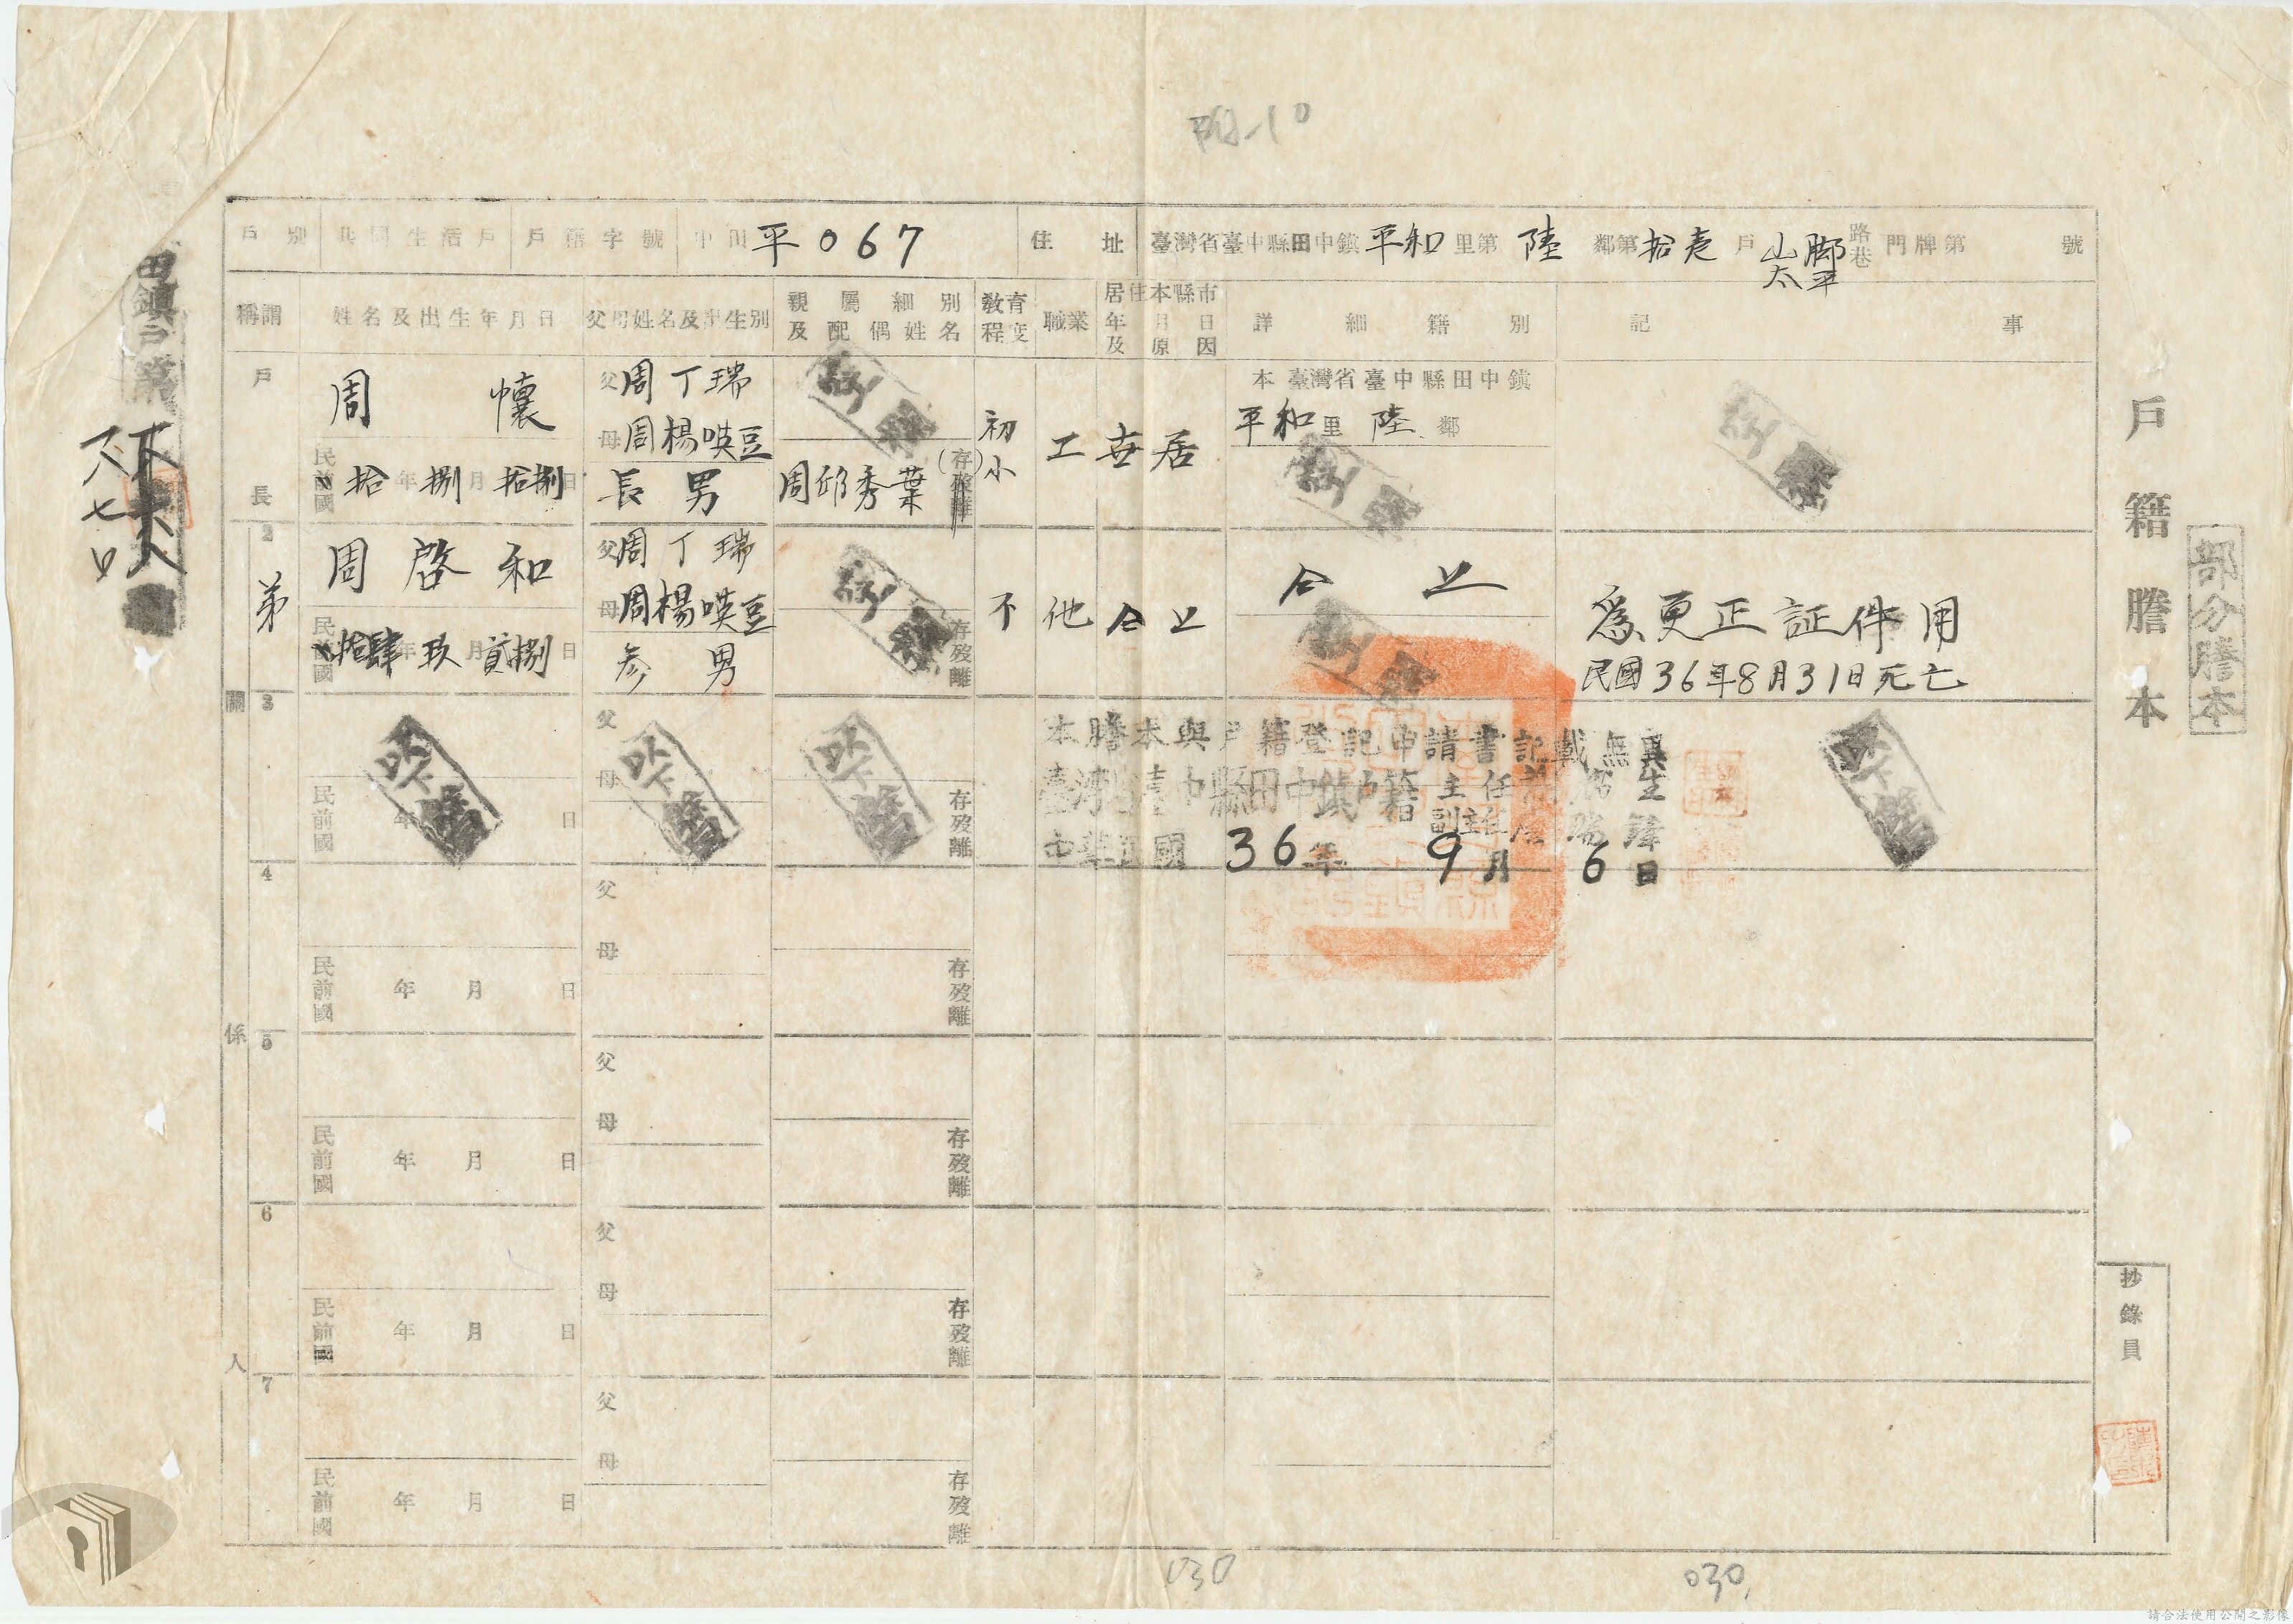 附-10
戶籍謄本
部分謄本
戶別 共同生活戶 戶籍字號 中田平067 住址 臺灣省臺中縣田中鎮平和里第陸鄰第拾壱戶山腳太平路巷門牌第號
稱謂 姓名及出生年月日 父母姓名及出生別 親屬細別及配偶姓名 教育程度 職業 居住本縣市年月日及原因 詳細籍別 記事
戶長
周懷
民前國拾年捌月拾捌日
父周丁瑞
母周楊暎豆
長男
周邱秀葉 (存)歿離
初小
工
世居
本臺灣省臺中縣田中鎮
平和里陸鄰
關係人
2
弟
周啓和
民前國拾肆年玖月貳捌日
父周丁瑞
母周楊暎豆
参男
存歿離
不
他
仝上
仝上
為更正証件用
民國36年8月31日死亡
3
民前國年日
父
母
存歿離
本謄本與戶籍登記申請書記載無異
臺灣省臺中縣田中鎮戶籍主任
副主任
中華民國36年9月6日
4
民前國年月日
父
母
存歿離
5
民前國年月日
父
母
存歿離
6
民前國年月日
父
母
存歿離
7
民前國年月日
父
母
存歿離
抄錄員
030
030
請合法使用公開之影像